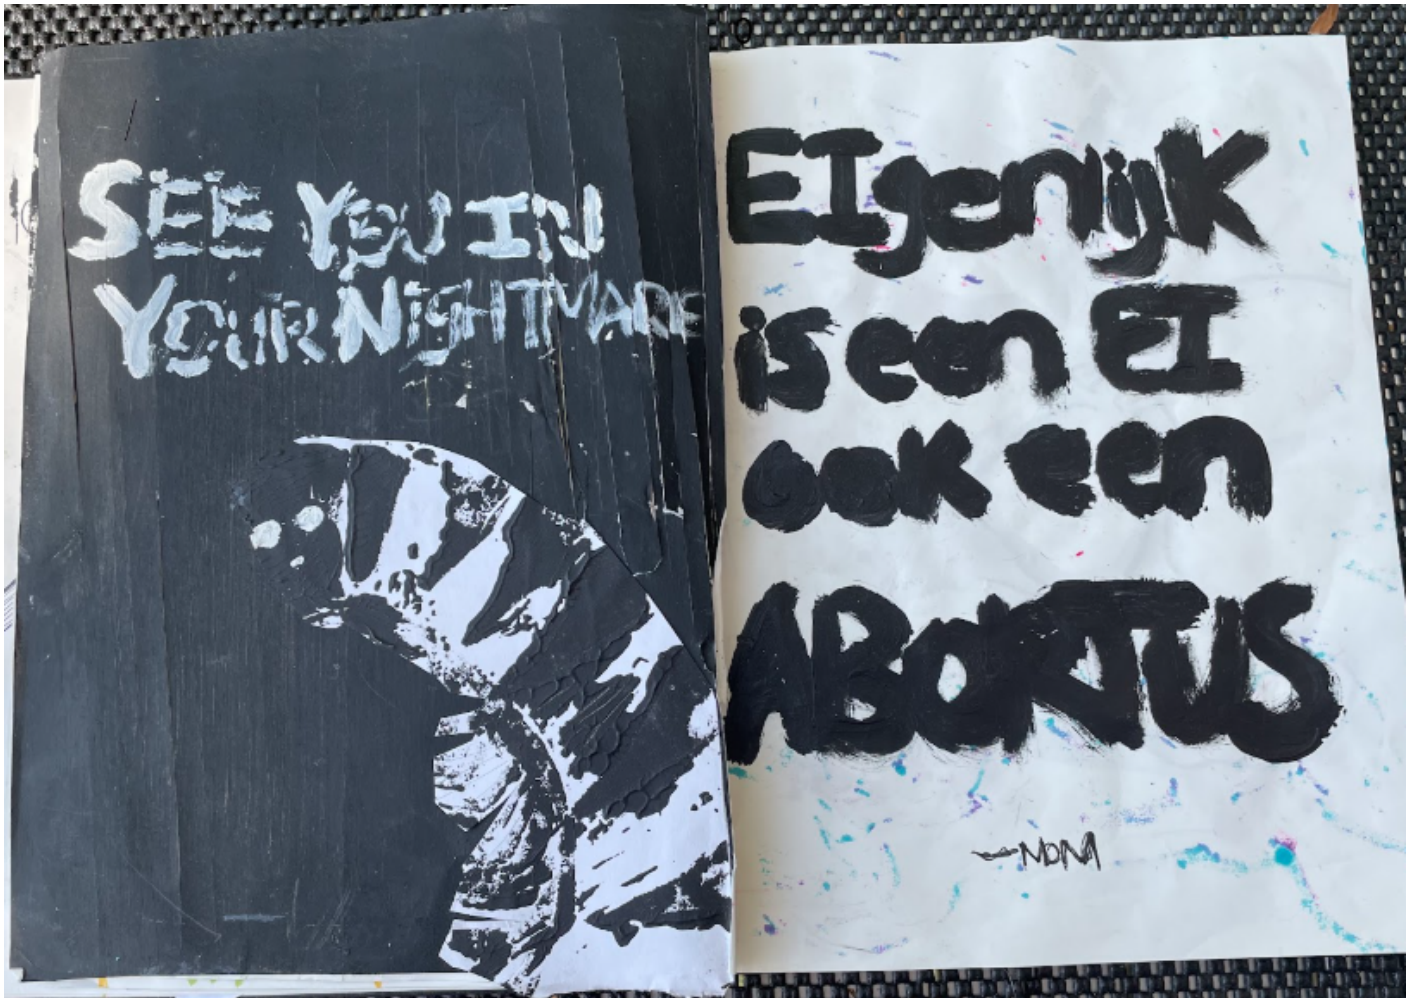 SEE YOU IN
YOUR NiGHTMARE
EIgenlijk
is een EI
ook een
ABORTUS
-MONA